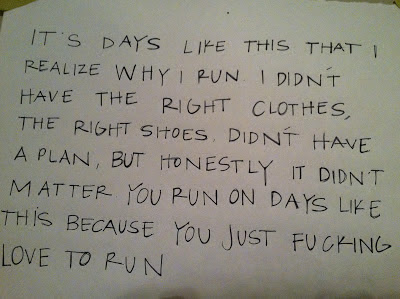 IT'S DAYS LIKE THIS THAT I
REALIZE WHY I RUN. I DIDN'T
HAVE THE RIGHT CLOTHES,
THE RIGHT SHOES. DIDN'T HAVE
A PLAN, BUT HONESTLY IT DIDN'T
MATTER YOU RUN ON DAYS LIKE
THIS BECAUSE YOU JUST FUCKING
LOVE TO RUN